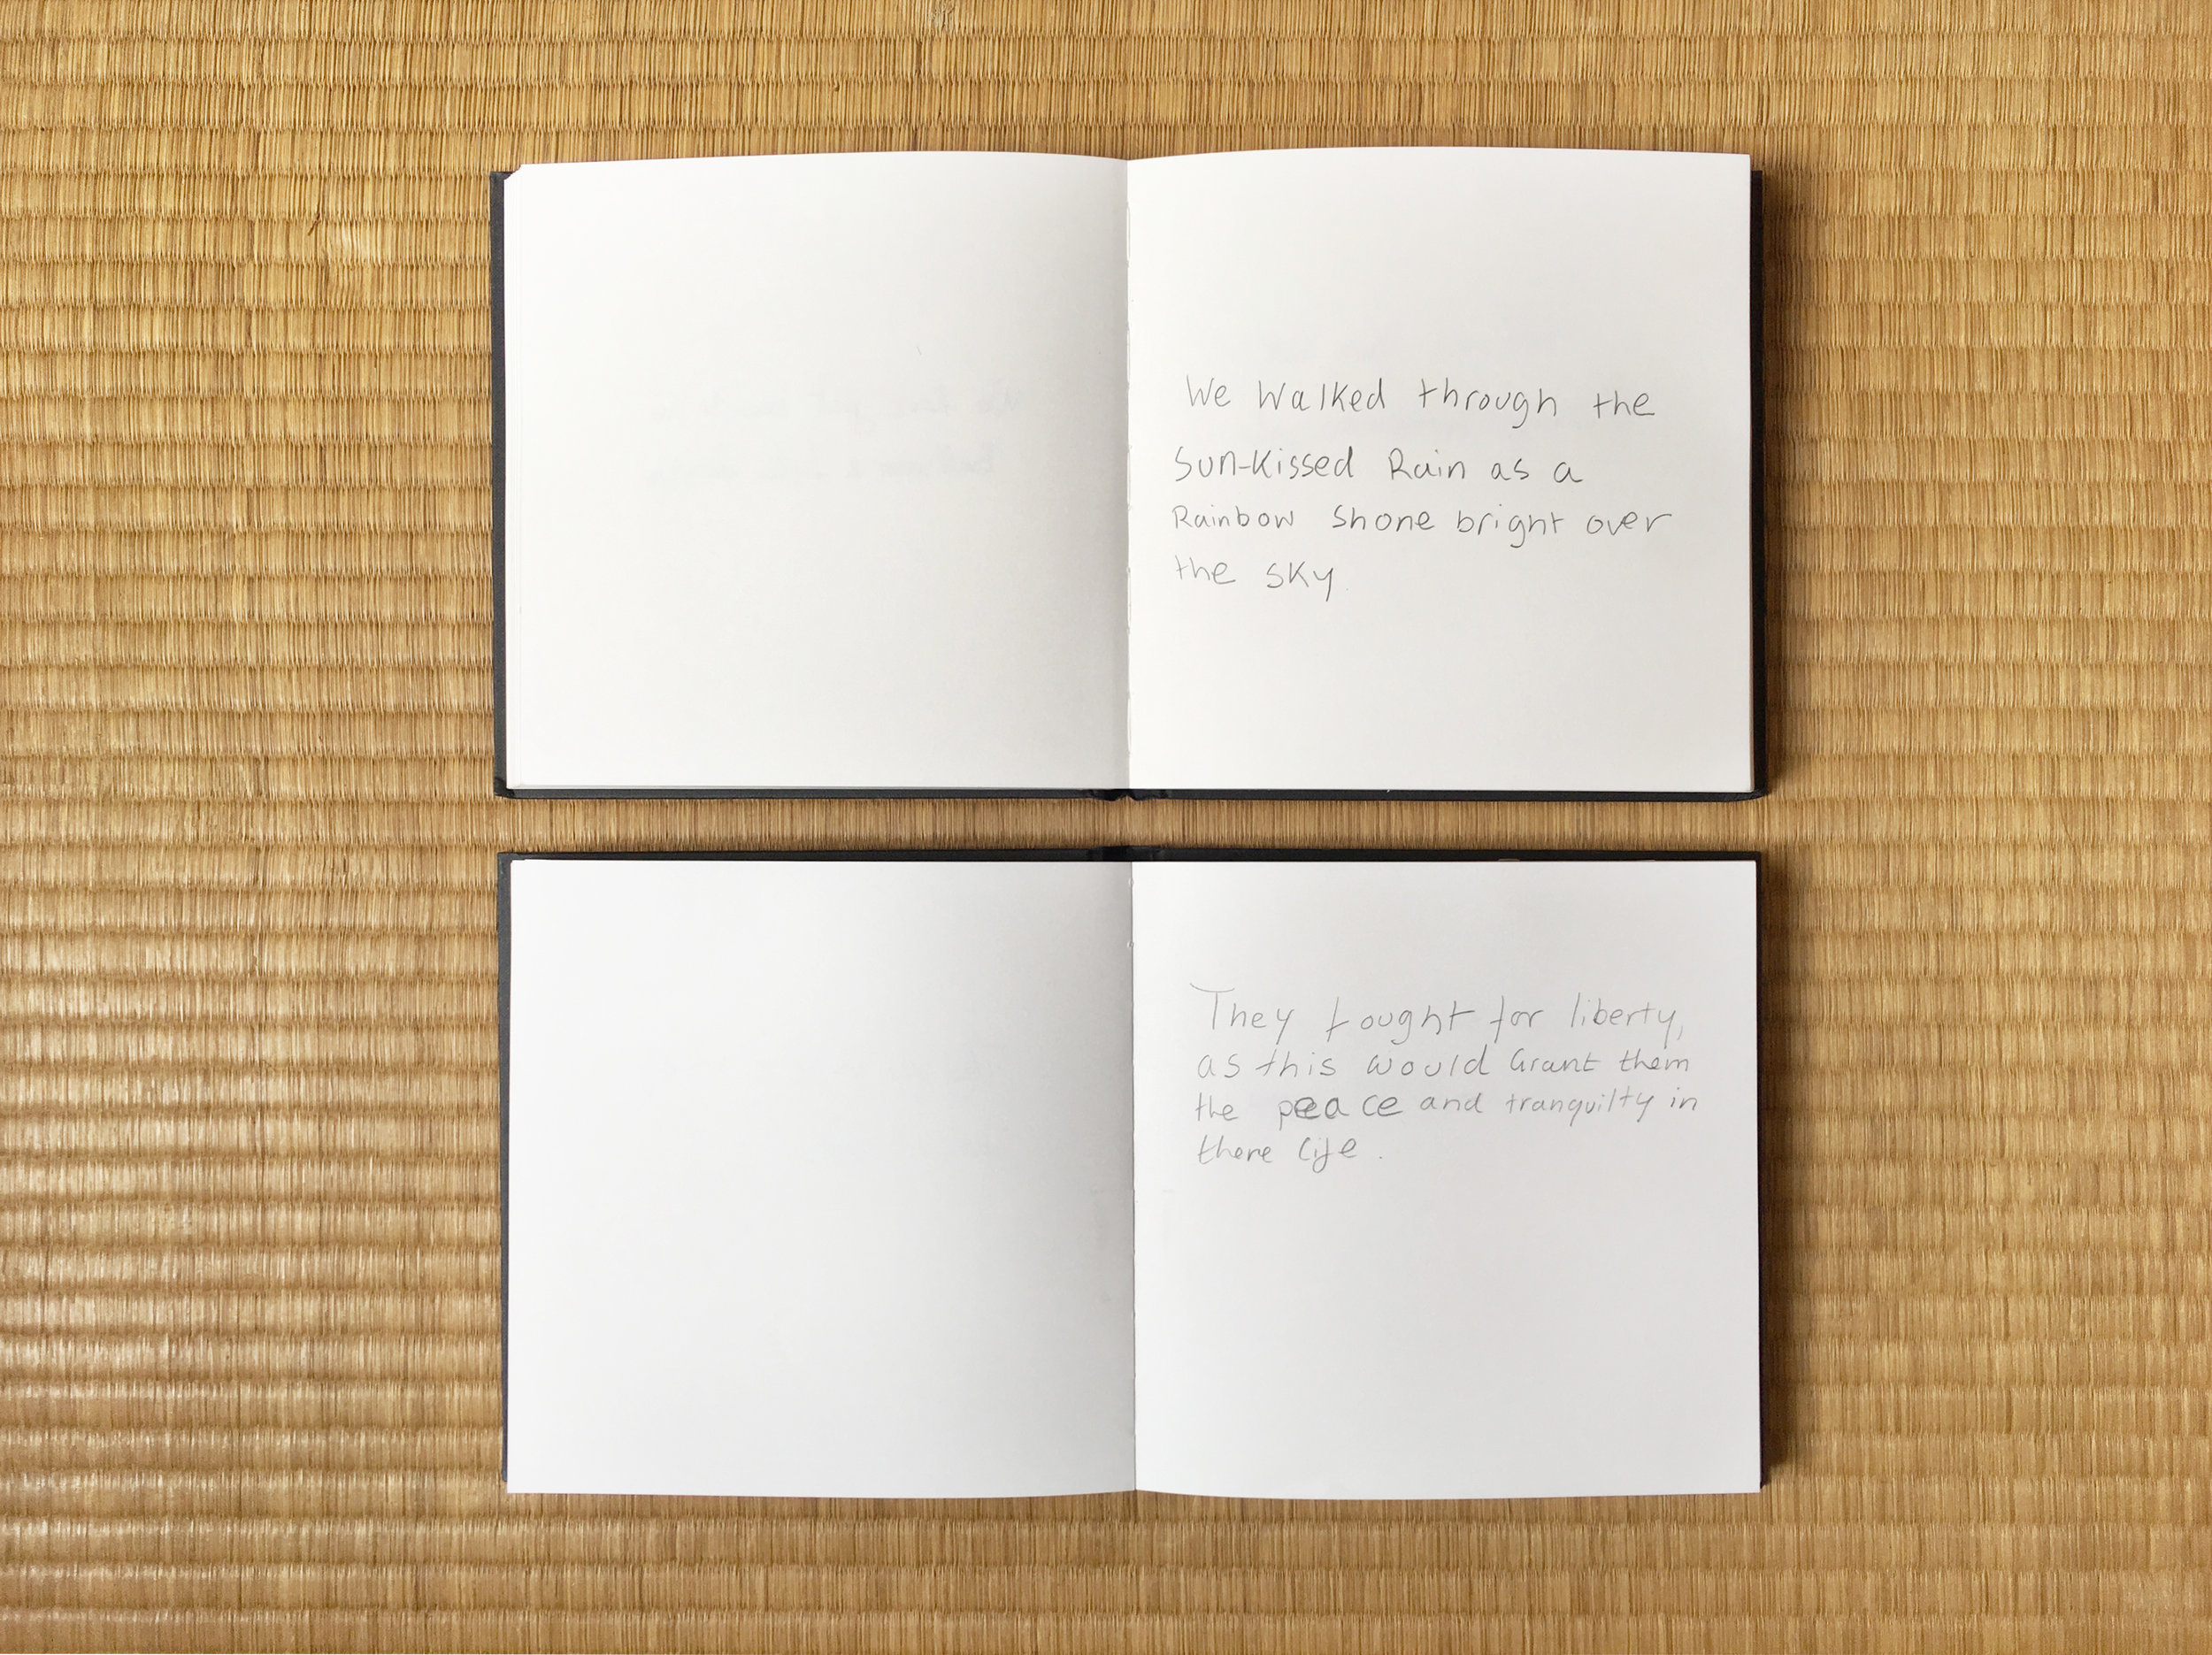 We Walked through the
Sun-Kissed Rain as a
Rainbow Shone bright over
the sky.
They fought for liberty,
as this would Grant them
the peace and tranquilty in
there life.